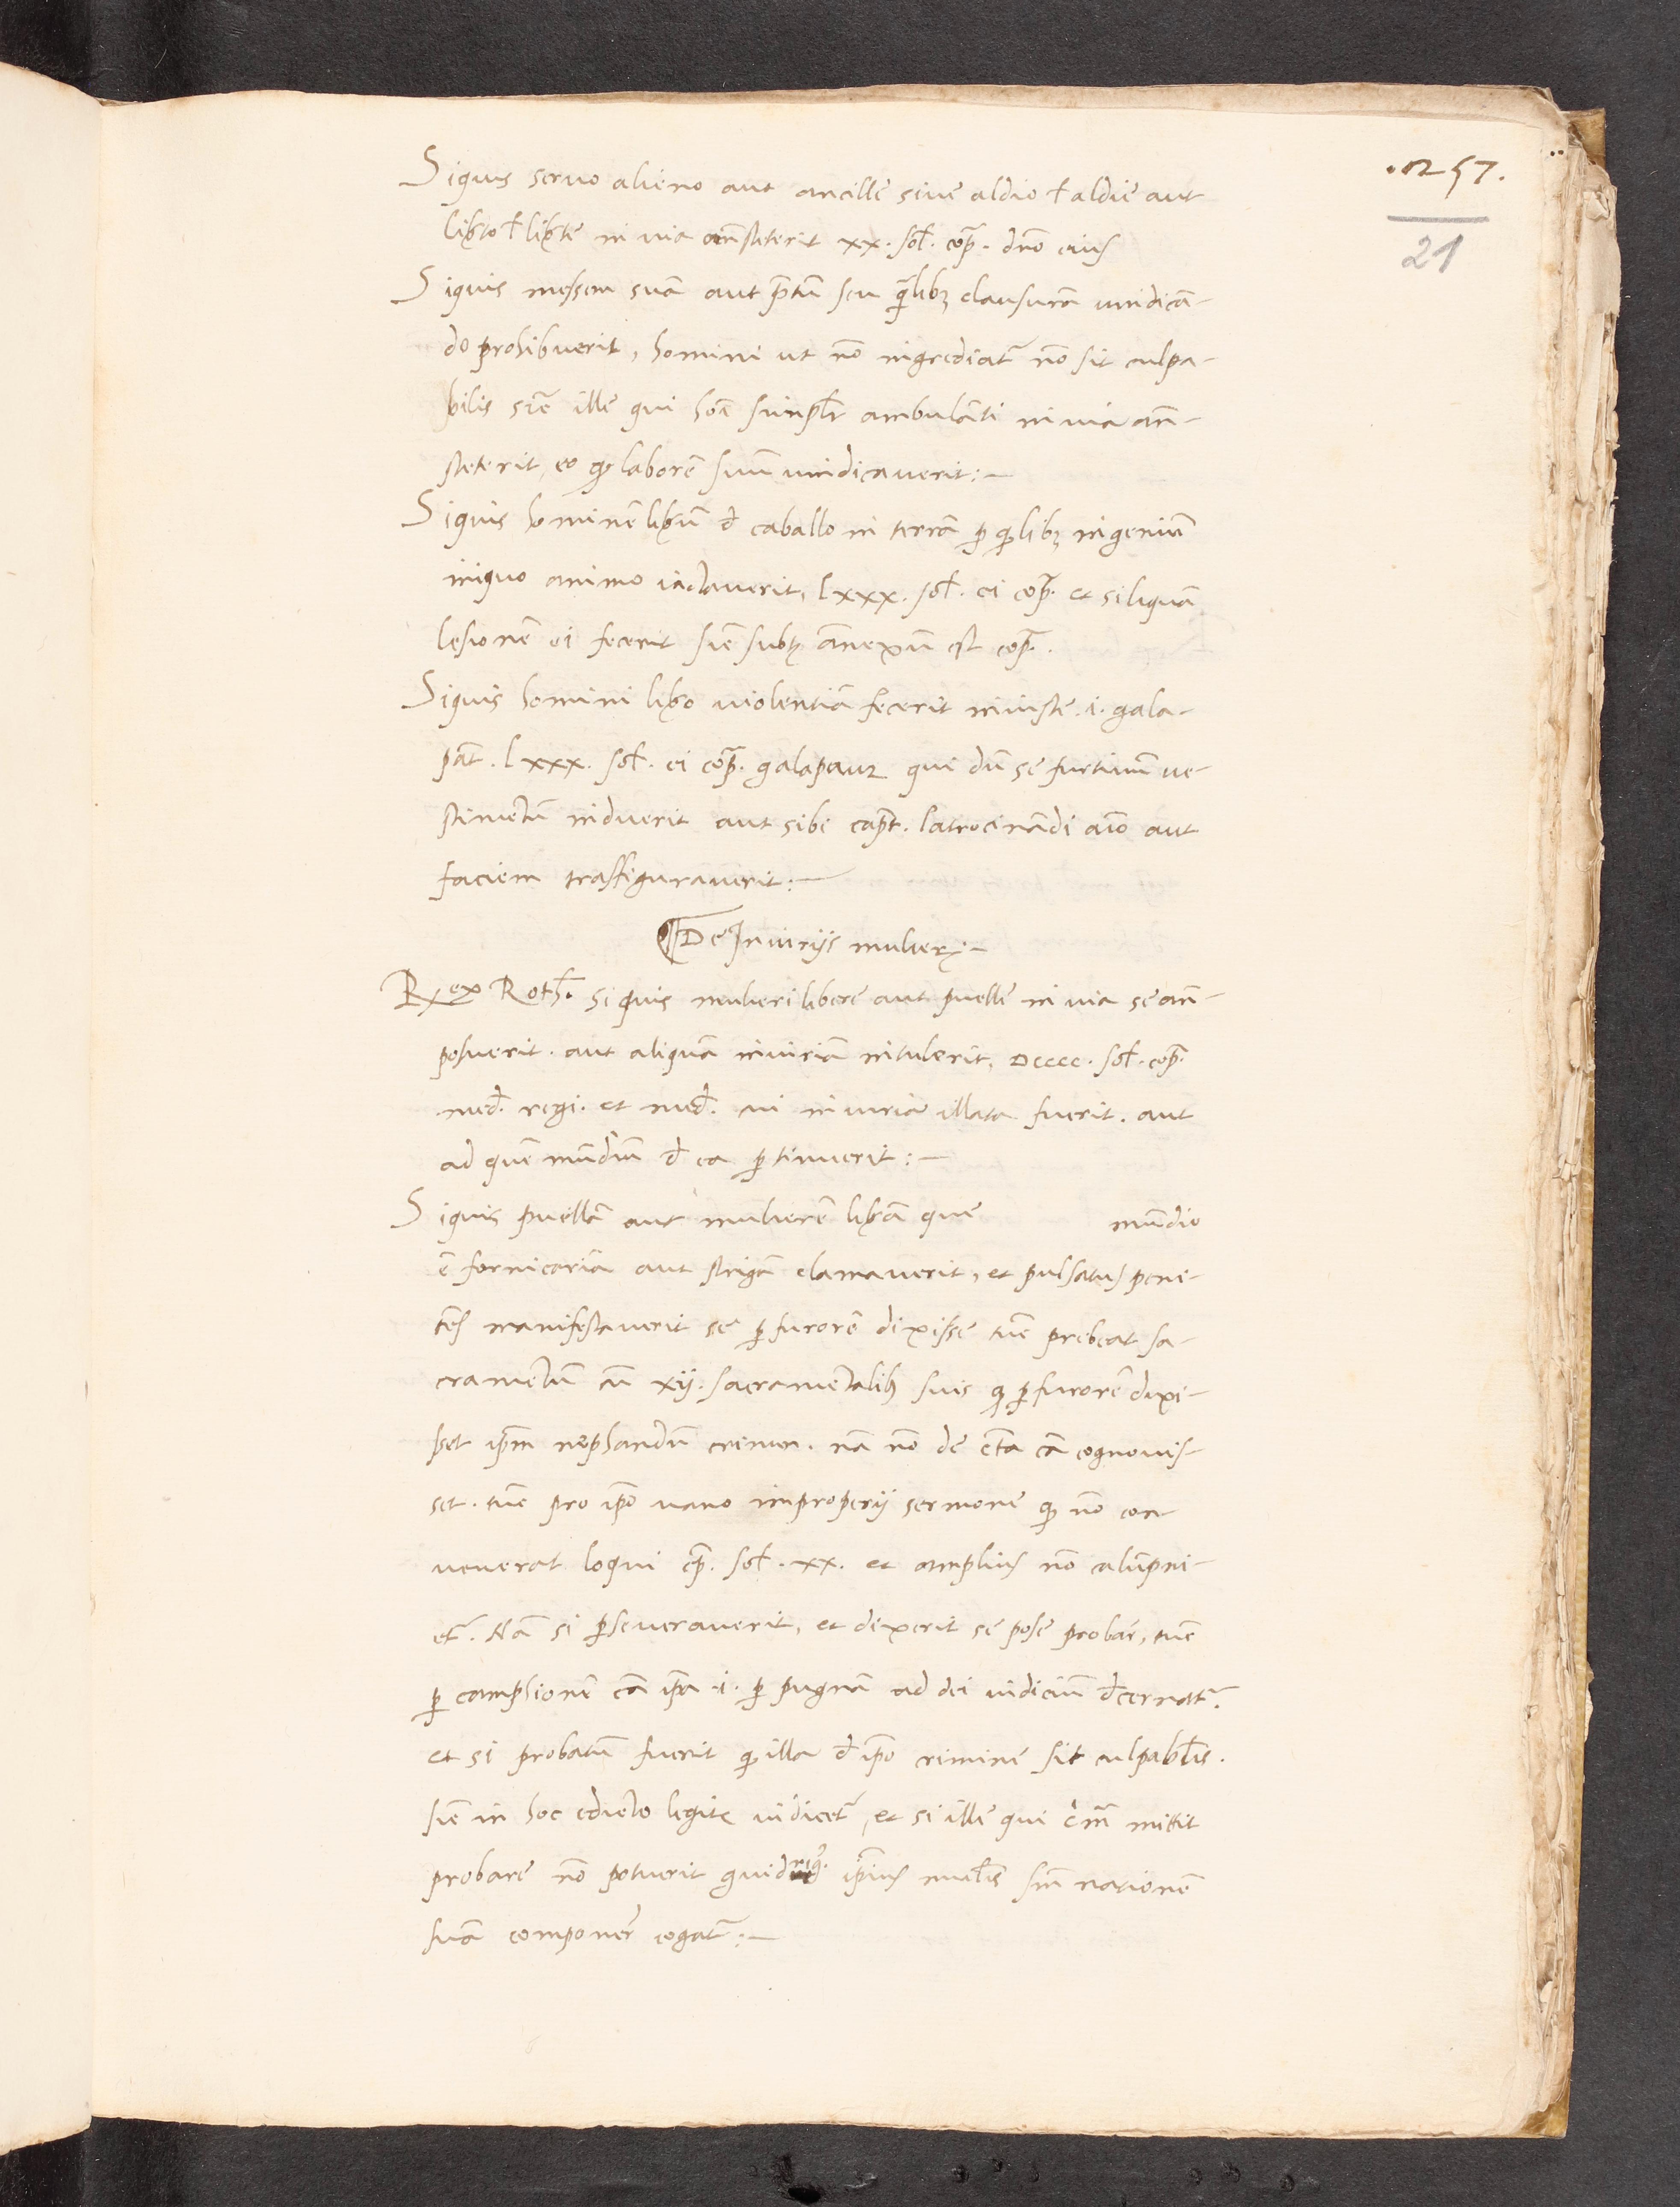 .1257.
21
Siquis seruo alieno aut ancille siue aldio ł aldie aut
lib̃to ł lib̃te in uia añsteterit xx. sol̃. cop̃. dño eius
Siquis messem suã aut p̃tũ seu q̃libꝫ clausurã uindicã-
do prohibuerit, homini ut nõ ingrediat̃ nõ sit culpa-
bilis sic̃ ille qui hoĩ simplr̃ ambulãti in uia añ-
steterit, eo ꝙ laborẽ suũ uindicauerit:—
Siquis hominẽ lib̃ũ đ caballo in terrã ꝑ ꝙlibꝫ ingeniũ
iniquo animo iactauerit, lxxx. sol̃. ei cop̃. et si liquã
lesionẽ ei fecerit sic̃ subtꝰ ãnexũ est cop̃.
Siquis homini lib̃o uiolentiã fecerit iniuste .i. gala-
pãt. lxxx. sol̃. ei cop̃. galapauꝫ qui dũ se furtiuũ ue-
stimẽtũ induerit aut sibi cap̃t. latrocinãdi aĩo aut
faciem trasfigurauerit:—
¶ De Iniurijs mulierꝫ:—
Rex Roth̃. si quis mulieri libere aut puelle in uia se añ-
posuerit. aut aliquã iniuriã intulerit, Dcccc. sol̃. cop̃.
med̃. regi. et med̃. cui iniuria illata fuerit. aut
ad quẽ mũdiũ đ ea ꝑtinuerit:—
Siquis puellã aut mulierẽ lib̃ã que mũdio
ẽ fornicariã aut strigã clamauerit, et pulsatus peni-
tẽs manifestauerit se ꝑ furorẽ dixisse tũc prebeat sa-
cramẽtũ cũ xij. sacramẽtalibꝫ suis ꝙ ꝑ furorẽ dixi-
sset ip̃m nephandũ crimen. nã nõ de c̃ta cã cognouis-
set. tũc pro ip̃o uano improperij sermone ꝙ nõ con
uenerat loqui cp̃. sol̃. xx. et amplius nõ calũpni-
et̃. Nã si ꝑseuerauerit, et dixerit se posse probare, tũc
ꝑ camphionẽ cã ip̃a .i. ꝑ pugnã ad dei iudiciũ đcernat̃.
et si probatũ fuerit ꝙ illa đ ip̃o crimine sit culpabl̃is.
sic̃ in hoc edicto legitꝫ iudicet̃, et si ille qui crim̃ mittit
probare nõ potuerit guidrig̃. ip̃ius mul̃is sm̃ nationẽ
suã componer̃ cogat̃:—